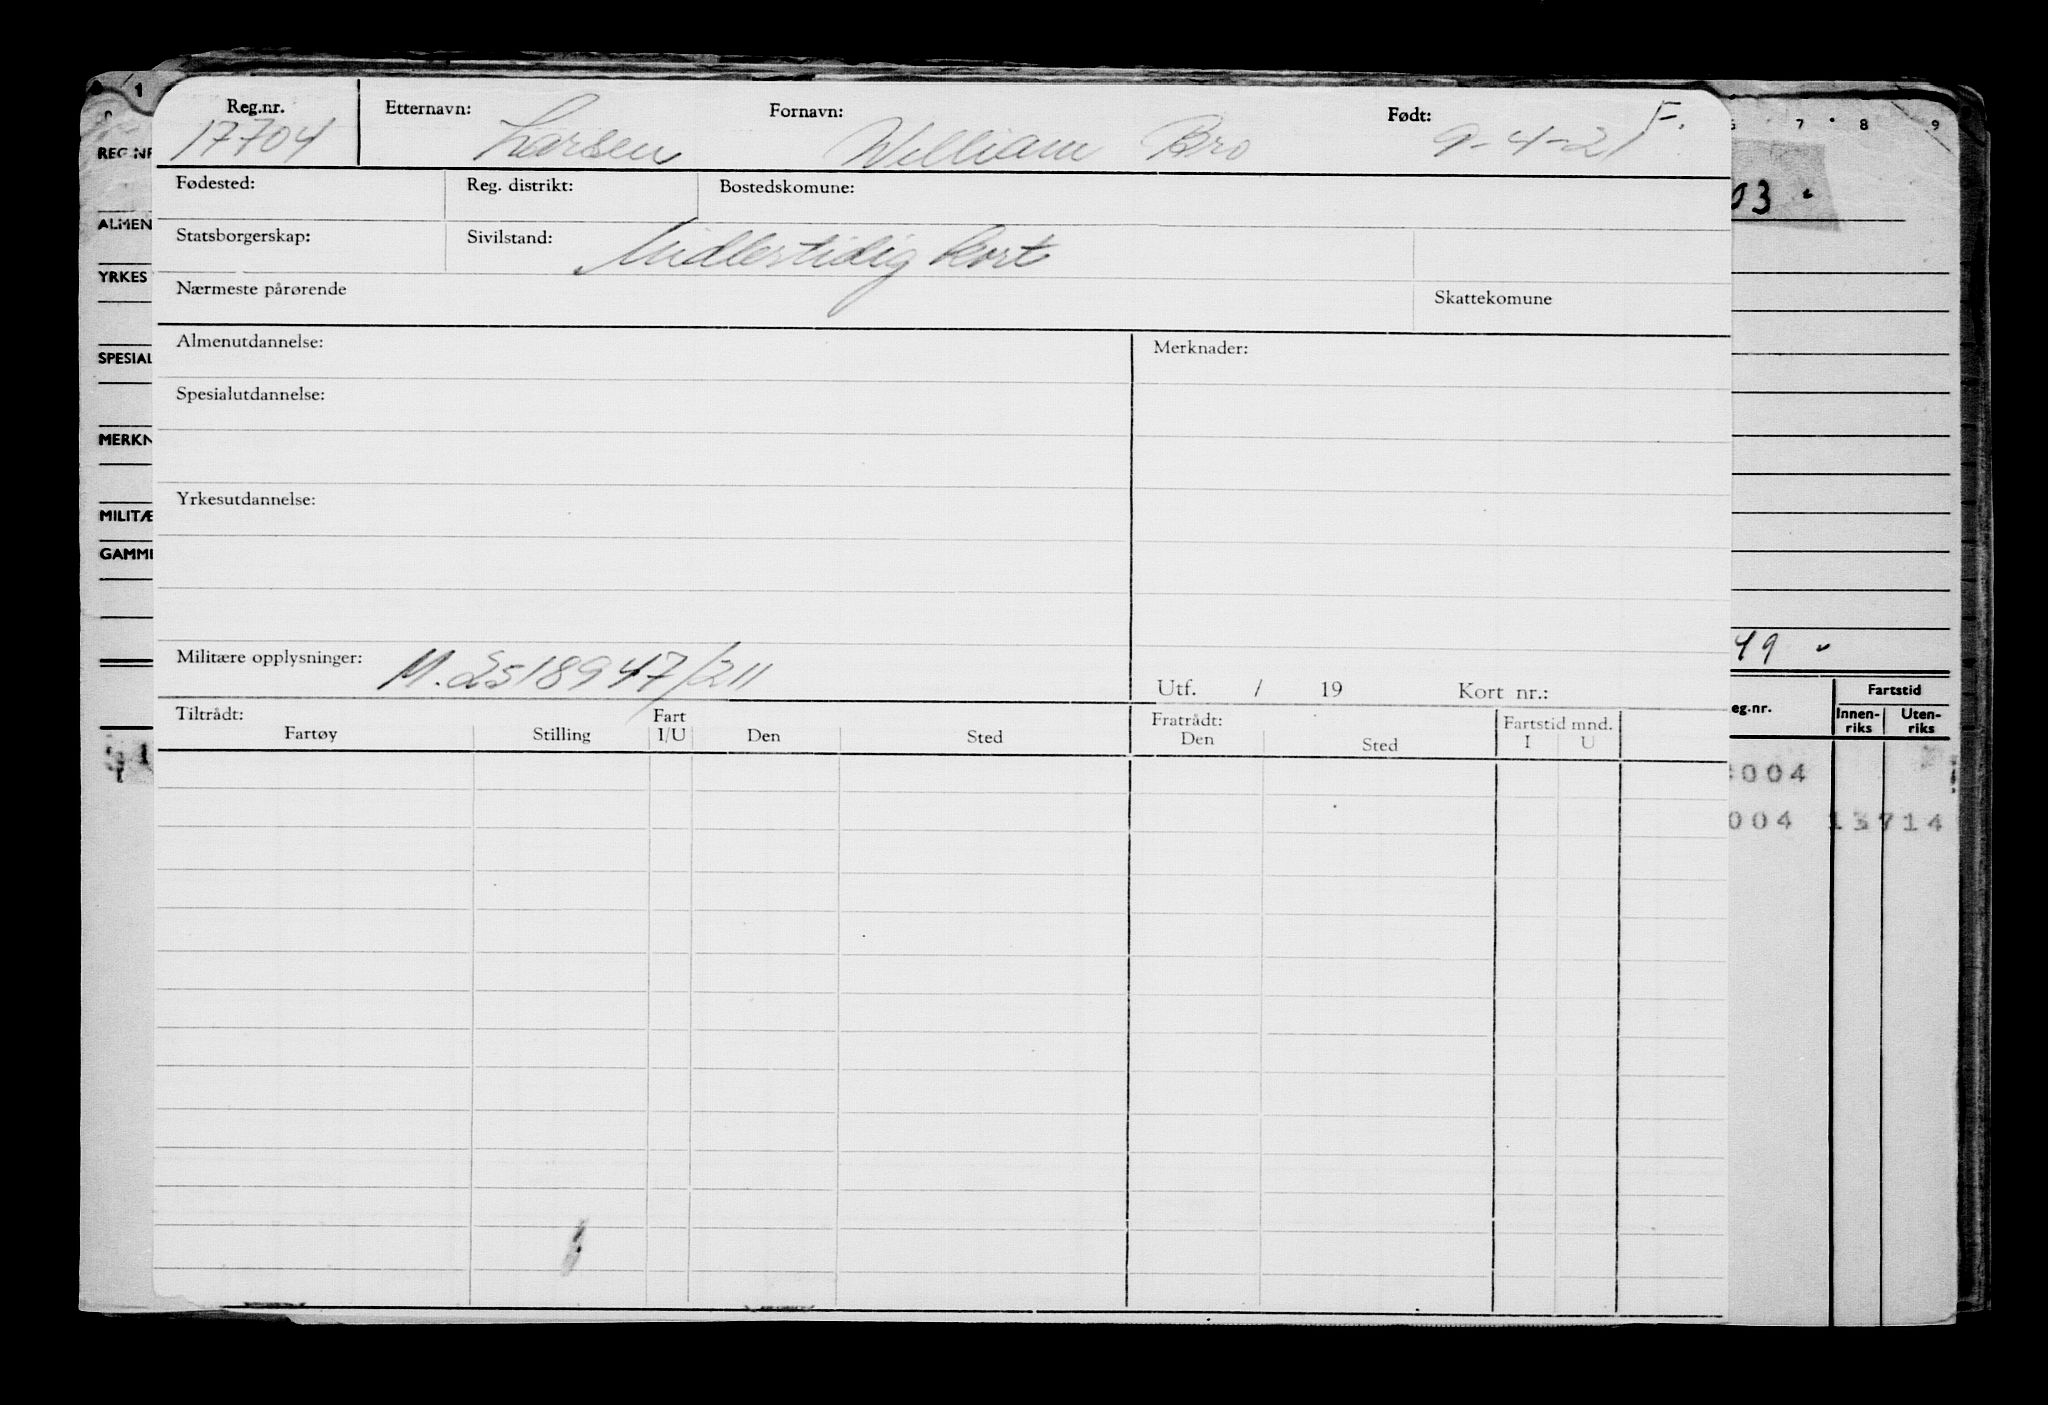 1
Reg.nr. Etternavn: Fornavn: Født: F.
17704 Larsen William Bro 9-4-21
7 8 9
REG.NR
03
Fødested: Reg. distrikt: Bostedskomune:
ALMEN
Statsborgerskap: Sivilstand: Midlertidig kort
YRKES
Nærmeste pårørende Skattekomune
Almenutdannelse: Merknader:
SPESIAL
Spesialutdannelse:
MERKN
Yrkesutdannelse:
MILITÆ
GAMME
49
Militære opplysninger: M.
Utf. / 19 Kort nr.:
Fartstid
eg.nr. Innen-riks Uten-riks
Tiltrådt: Fratrådt: Fartstid mnd.
Fartøy Stilling Fart I/U Den Sted Den Sted I U
004
004 13714